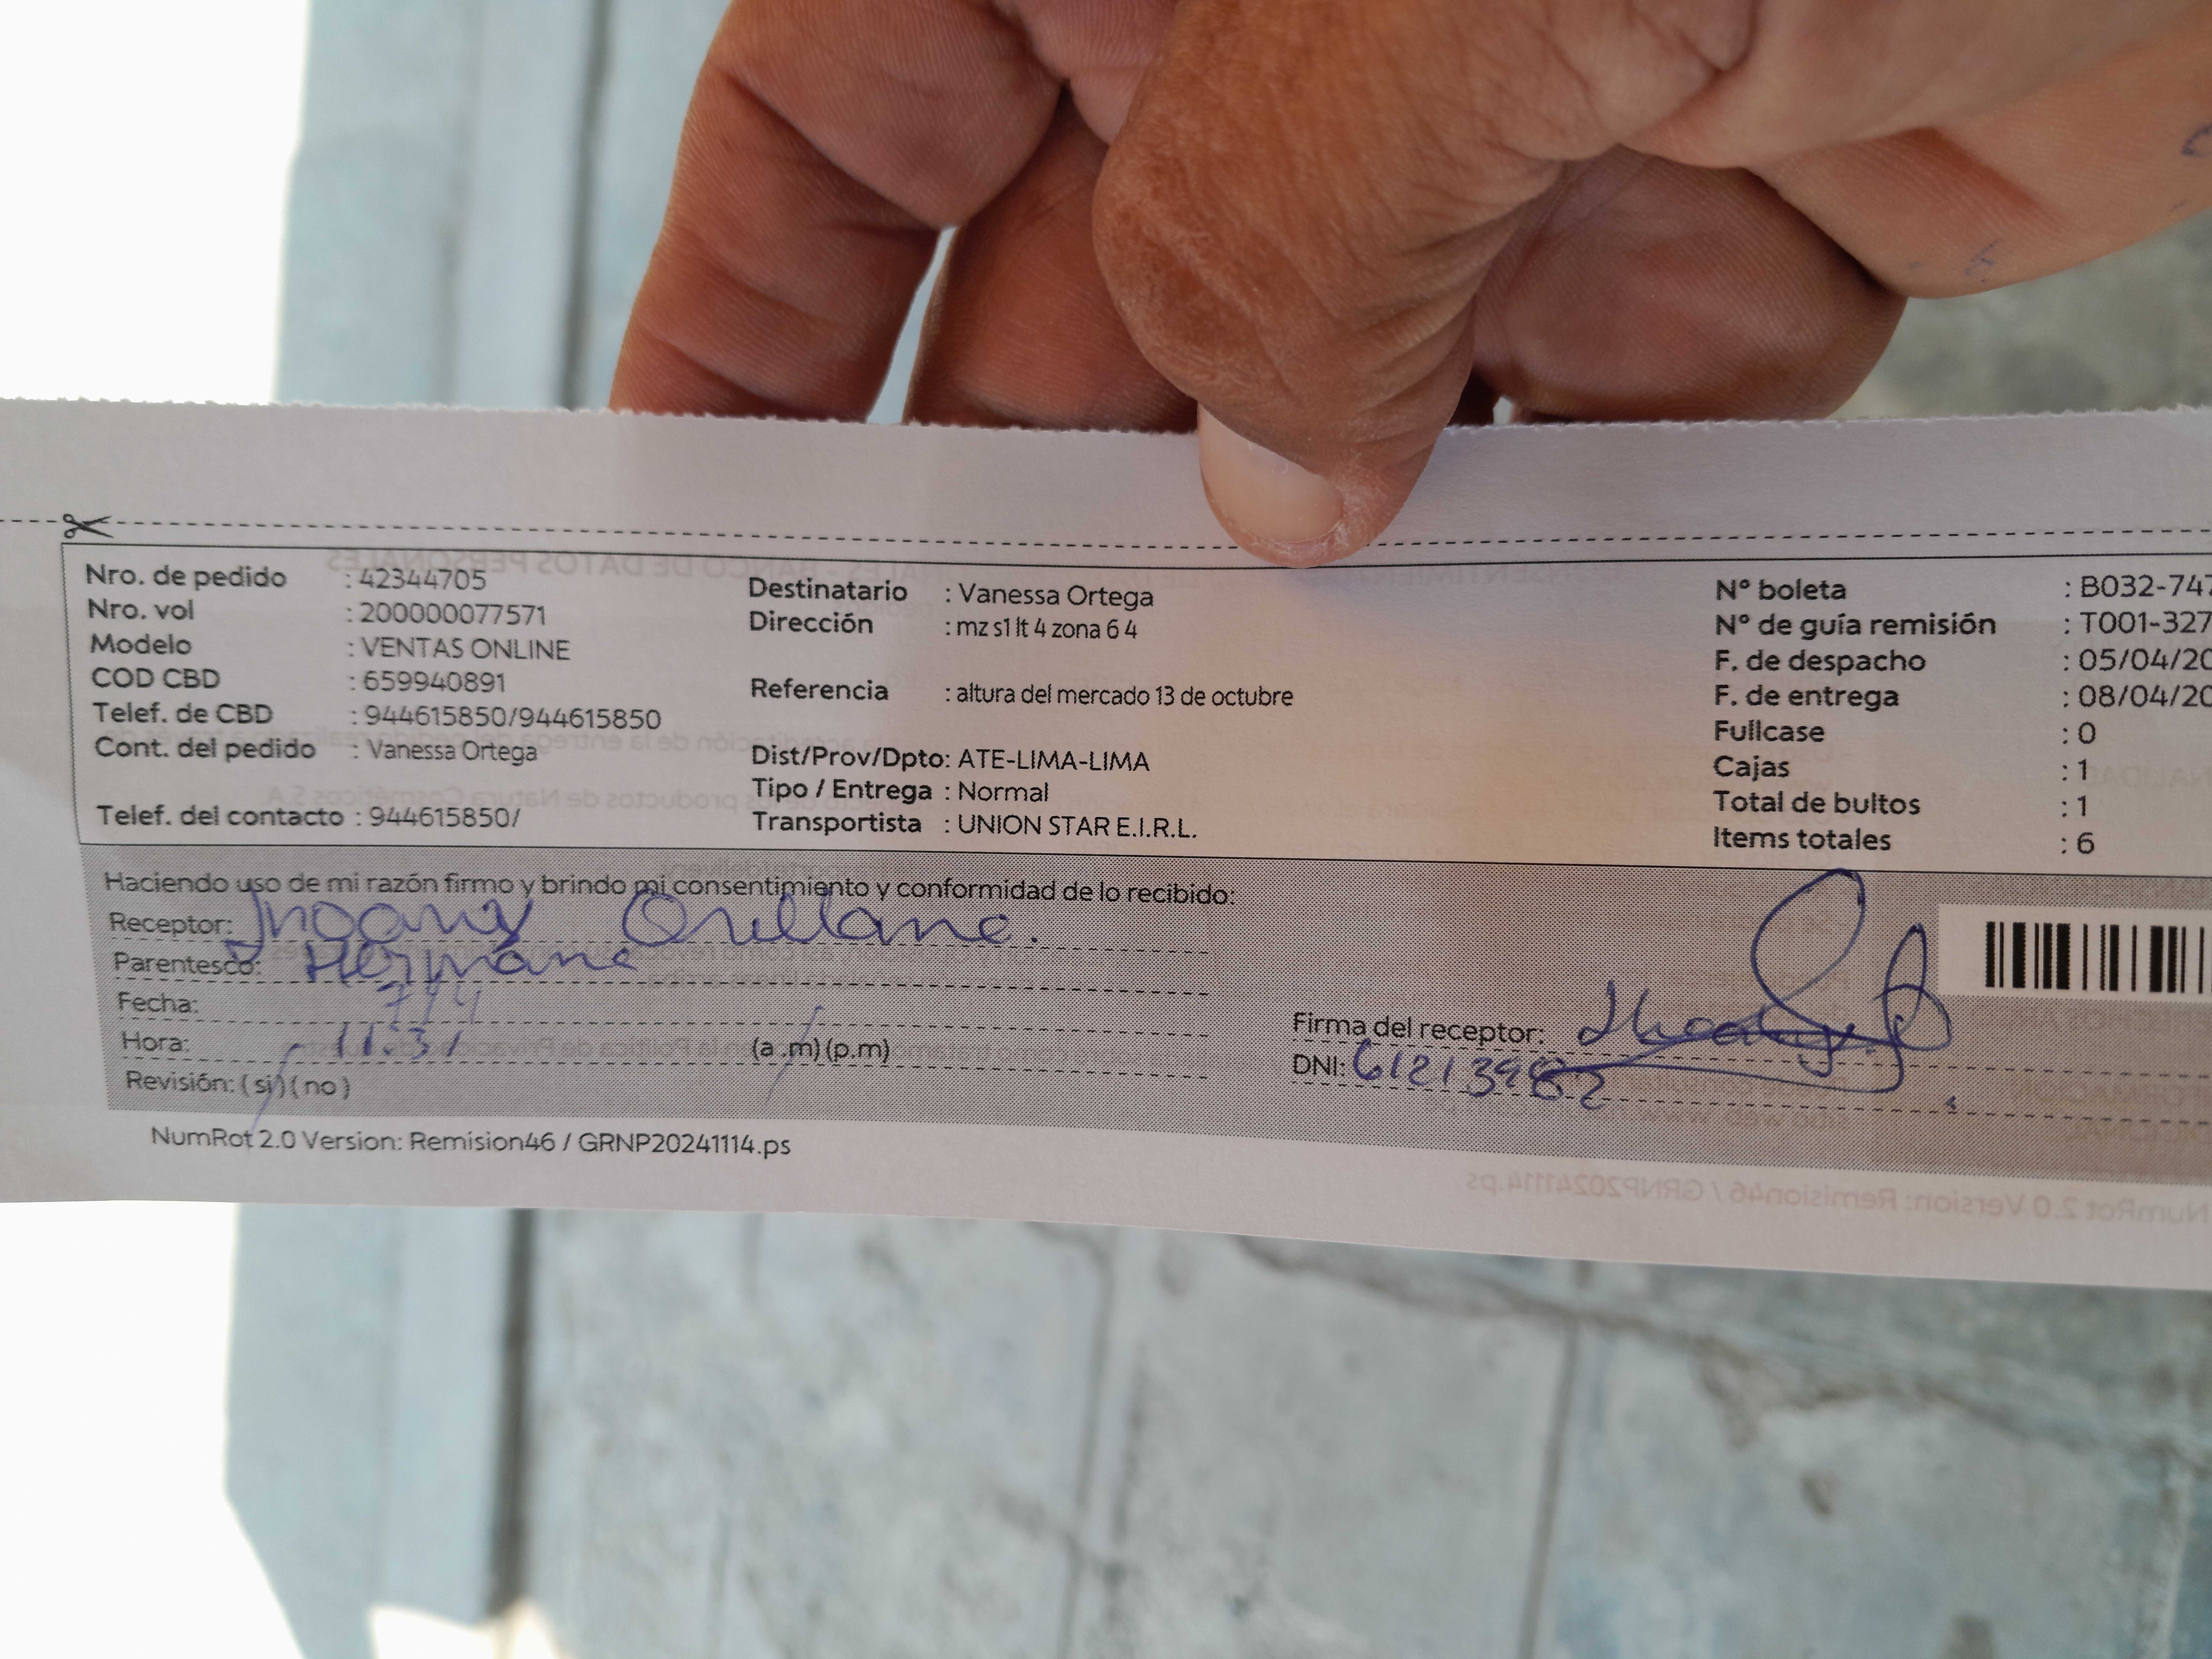 Nro. de pedido : 42344705
Nro. vol : 200000077571
Modelo : VENTAS ONLINE
COD CBD : 659940891
Telef. de CBD : 944615850/944615850
Cont. del pedido : Vanessa Ortega
Telef. del contacto : 944615850/
Destinatario : Vanessa Ortega
Dirección : mz s1 lt 4 zona 6 4
Referencia : altura del mercado 13 de octubre
Dist/Prov/Dpto: ATE-LIMA-LIMA
Tipo / Entrega : Normal
Transportista : UNION STAR E.I.R.L.
N° boleta : B032-747
N° de guía remisión : T001-327
F. de despacho : 05/04/20
F. de entrega : 08/04/20
Fullcase : 0
Cajas : 1
Total de bultos : 1
Items totales : 6
Haciendo uso de mi razón firmo y brindo mi consentimiento y conformidad de lo recibido:
Receptor: Jhoany Orellana.
Parentesco: Hermana
Fecha: 7/4
Hora: 11:31 (a .m) (p.m)
Revisión: ( si ) ( no )
Firma del receptor:
DNI:
NumRot 2.0 Version: Remision46 / GRNP20241114.ps